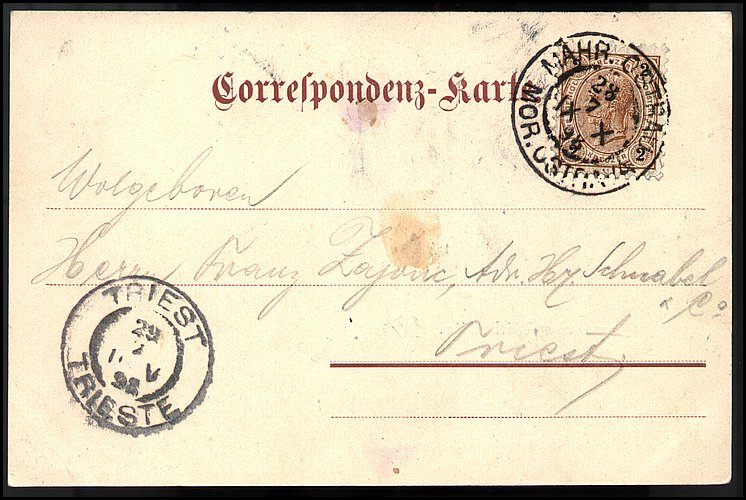 Correspondenz-Karte
MÄHR. OSTRAU
28
7
98
MOR. OSTRAVA
2
Wolgeboren
Herrn Franz Zajonc, Adr. Hy. Schnabel
& Co
Triest,
TRIEST
29
7
98
TRIESTE